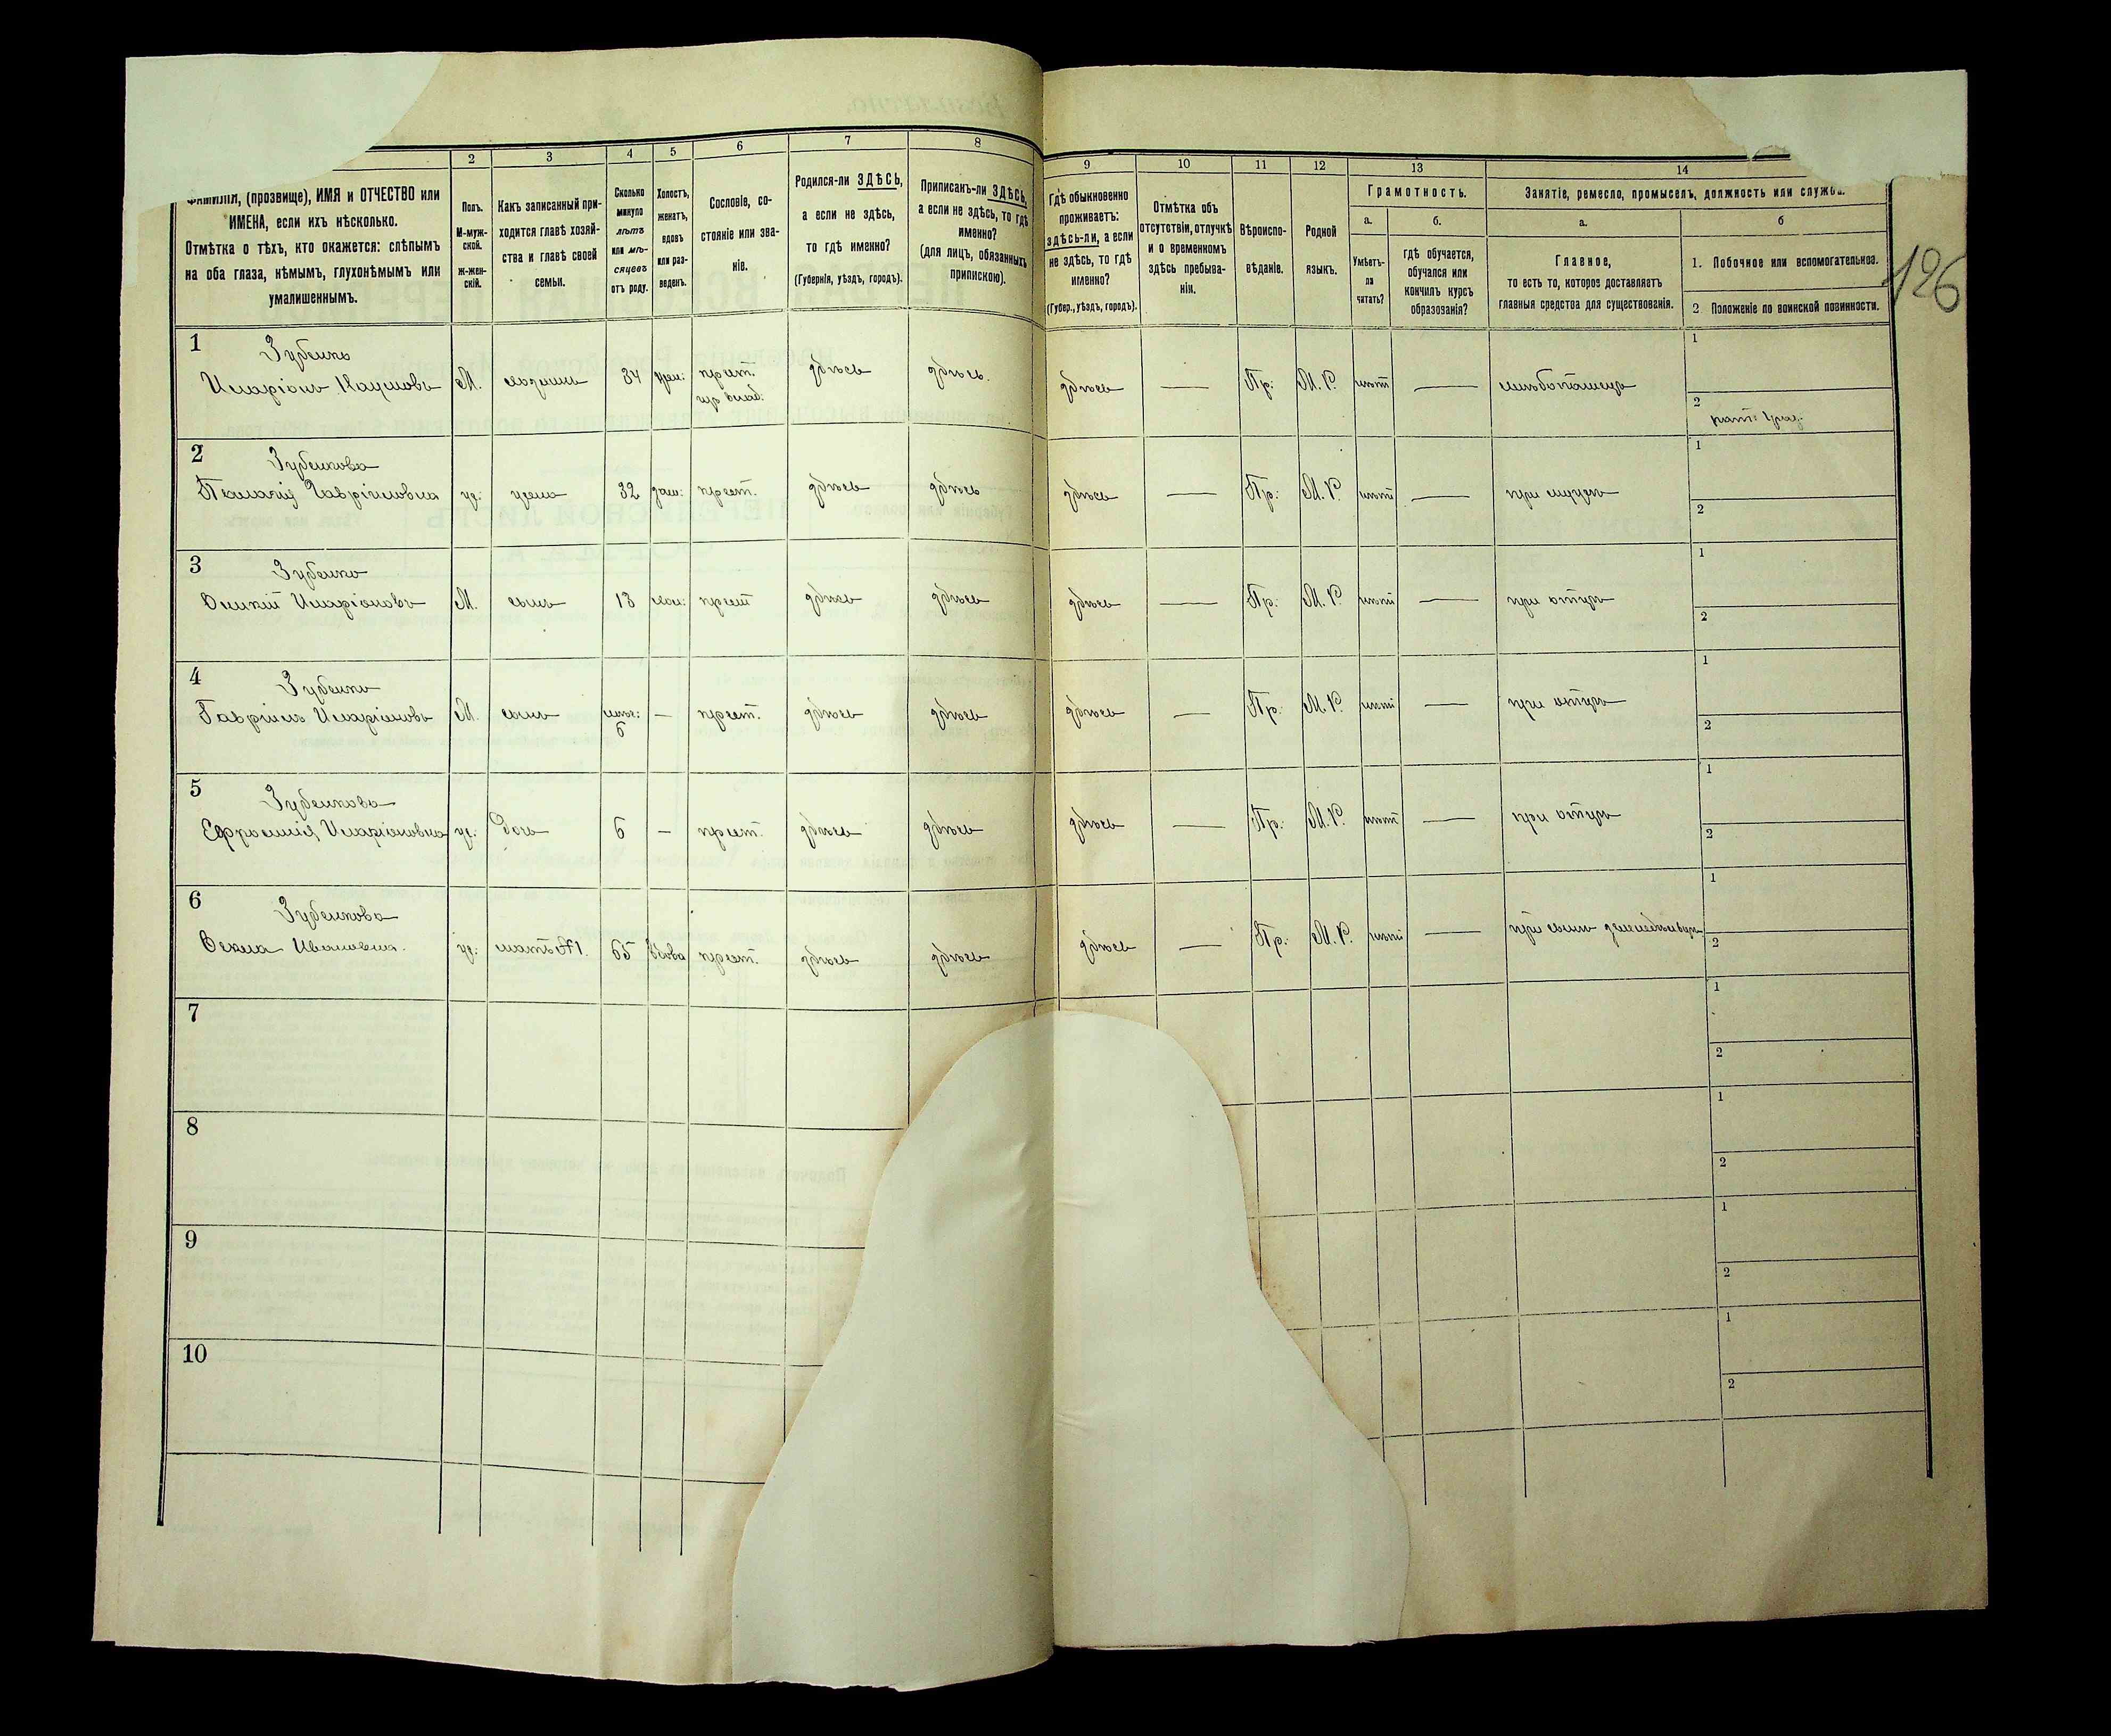 2 3 4 5 6 7 8 9 10 11 12 13 14
ФАМИЛІЯ, (прозвище), ИМЯ и ОТЧЕСТВО или
ИМЕНА, если ихъ нѣсколько.
Отмѣтка о тѣхъ, кто окажется: слѣпымъ
на оба глаза, нѣмымъ, глухонѣмымъ или
умалишеннымъ.
Полъ.
М-муж-
ской.
ж-жен-
скій.
Какъ записанный при-
ходится главѣ хозяй-
ства и главѣ своей
семьи.
Сколько
минуло
лѣтъ
или мѣ-
сяцевъ
отъ роду.
Холостъ,
женатъ,
вдовъ
или раз-
веденъ.
Сословіе, со-
стояніе или зва-
ніе.
Родился-ли ЗДѢСЬ,
а если не здѣсь,
то гдѣ именно?
(Губернія, уѣздъ, городъ).
Приписанъ-ли ЗДѢСЬ,
а если не здѣсь, то гдѣ
именно?
(для лицъ, обязанныхъ
припискою).
Гдѣ обыкновенно
проживаетъ:
здѣсь-ли, а если
не здѣсь, то гдѣ
именно?
(Губер., уѣздъ, городъ).
Отмѣтка объ
отсутствіи, отлучкѣ
и о временномъ
здѣсь пребыва-
ніи.
Вѣроиспо-
вѣданіе.
Родной
языкъ.
Грамотность.
а. б.
Умѣетъ-
ли
читать?
гдѣ обучается,
обучался или
кончилъ курсъ
образованія?
Занятіе, ремесло, промыселъ, должность или служба.
а. б
Главное,
то есть то, которое доставляетъ
главныя средства для существованія.
1. Побочное или вспомогательное.
2. Положеніе по воинской повинности.
126
1 Зубенко
Иларіонъ Наумовъ М. хозяинъ 34 жен: крест. здѣсь здѣсь. здѣсь — Пр: М. Р. нѣтъ — хлѣбопашецъ
1
2
2 Зубенкова
Пелагія Гавріиловна ж: жена 32 зам: крест. здѣсь здѣсь здѣсь — Пр: М. Р. нѣтъ — при мужѣ
1
2
3 Зубенко
Иларіоновъ М. сынъ 13 хол: крест здѣсь здѣсь здѣсь — Пр: М. Р. нѣтъ — при отцѣ
1
2
4 Зубенко
Гавріилъ Иларіоновъ М. сынъ мѣс: 6 — крест. здѣсь здѣсь здѣсь — Пр: М. Р. нѣтъ — при отцѣ
1
2
5 Зубенкова
Ефросинія Иларіоновна ж: дочь 6 — крест. здѣсь здѣсь здѣсь — Пр: М. Р. нѣтъ — при отцѣ
1
2
6 Зубенкова
Ивановна. ж: мать №1. 65 вдова крест. здѣсь здѣсь здѣсь — Пр: М. Р. нѣтъ — при сынѣ
1
2
7
1
2
8
1
2
9
1
2
10
1
2